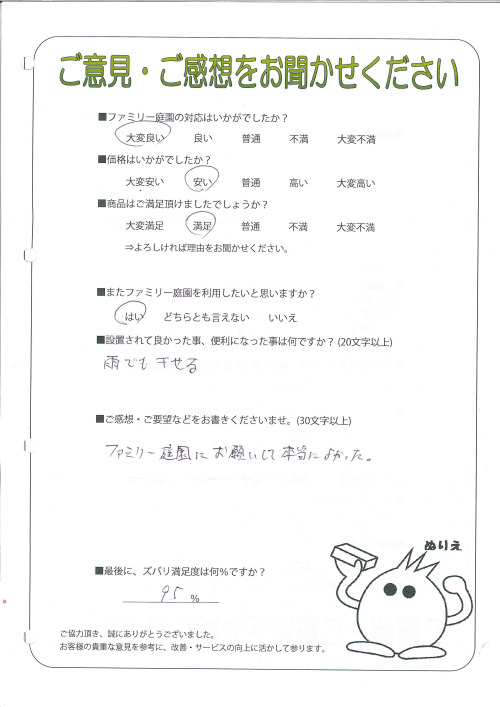 ご意見・ご感想をお聞かせください
■ファミリー庭園の対応はいかがでしたか？
大変良い 良い 普通 不満 大変不満
■価格はいかがでしたか？
大変安い 安い 普通 高い 大変高い
■商品はご満足頂けましたでしょうか？
大変満足 満足 普通 不満 大変不満
⇒よろしければ理由をお聞かせください。
■またファミリー庭園を利用したいと思いますか？
はい どちらとも言えない いいえ
■設置されて良かった事、便利になった事は何ですか？(20文字以上)
雨でも干せる
■ご感想・ご要望などをお書きくださいませ。(30文字以上)
ファミリー庭園にお願いして本当によかった。
ぬりえ
■最後に、ズバリ満足度は何％ですか？
95 %
ご協力頂き、誠にありがとうございました。
お客様の貴重な意見を参考に、改善・サービスの向上に活かして参ります。